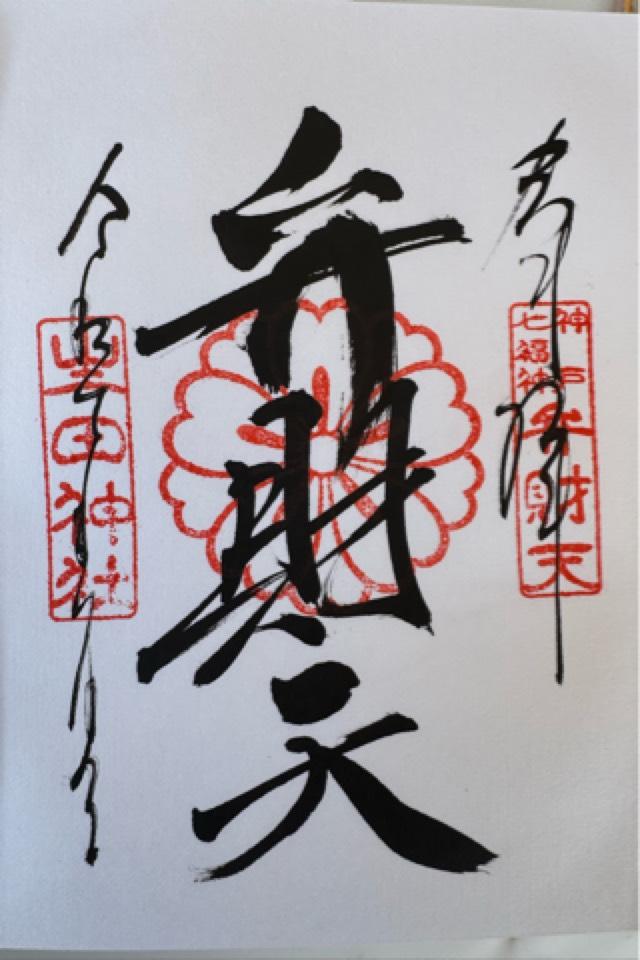 奉拝
神戸
七福神
弁財天
弁財天
令和
生田神社